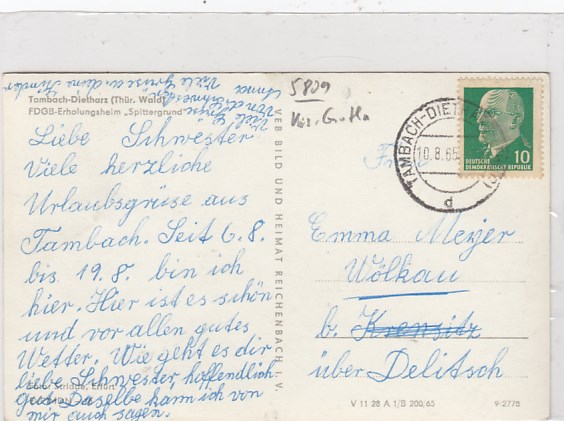 Tambach-Dietharz (Thür. Wald)
FDGB-Erholungsheim „Spittergrund
Liebe Schwester
Viele herzliche
Urlaubsgrüse aus
Tambach. Seit 6.8.
bis 19.8. bin ich
hier. Hier ist es schön
und vor allen gutes
Wetter. Wie geht es dir
liebe Schwester, hoffendlich
gut Daselbe kann ich von
mir auch sagen.
Viele Grüse
VEB BILD UND HEIMAT REICHENBACH i. V.
5809
Krs. Gotha
TAMBACH-DIETHARZ
10.8.65
d
DEUTSCHE
DEMOKRATISCHE REPUBLIK
10
Emma Meyer
Wölkau
b. Krensitz
über Delitsch
V 11 28 A 1/B 200/65
9-2778